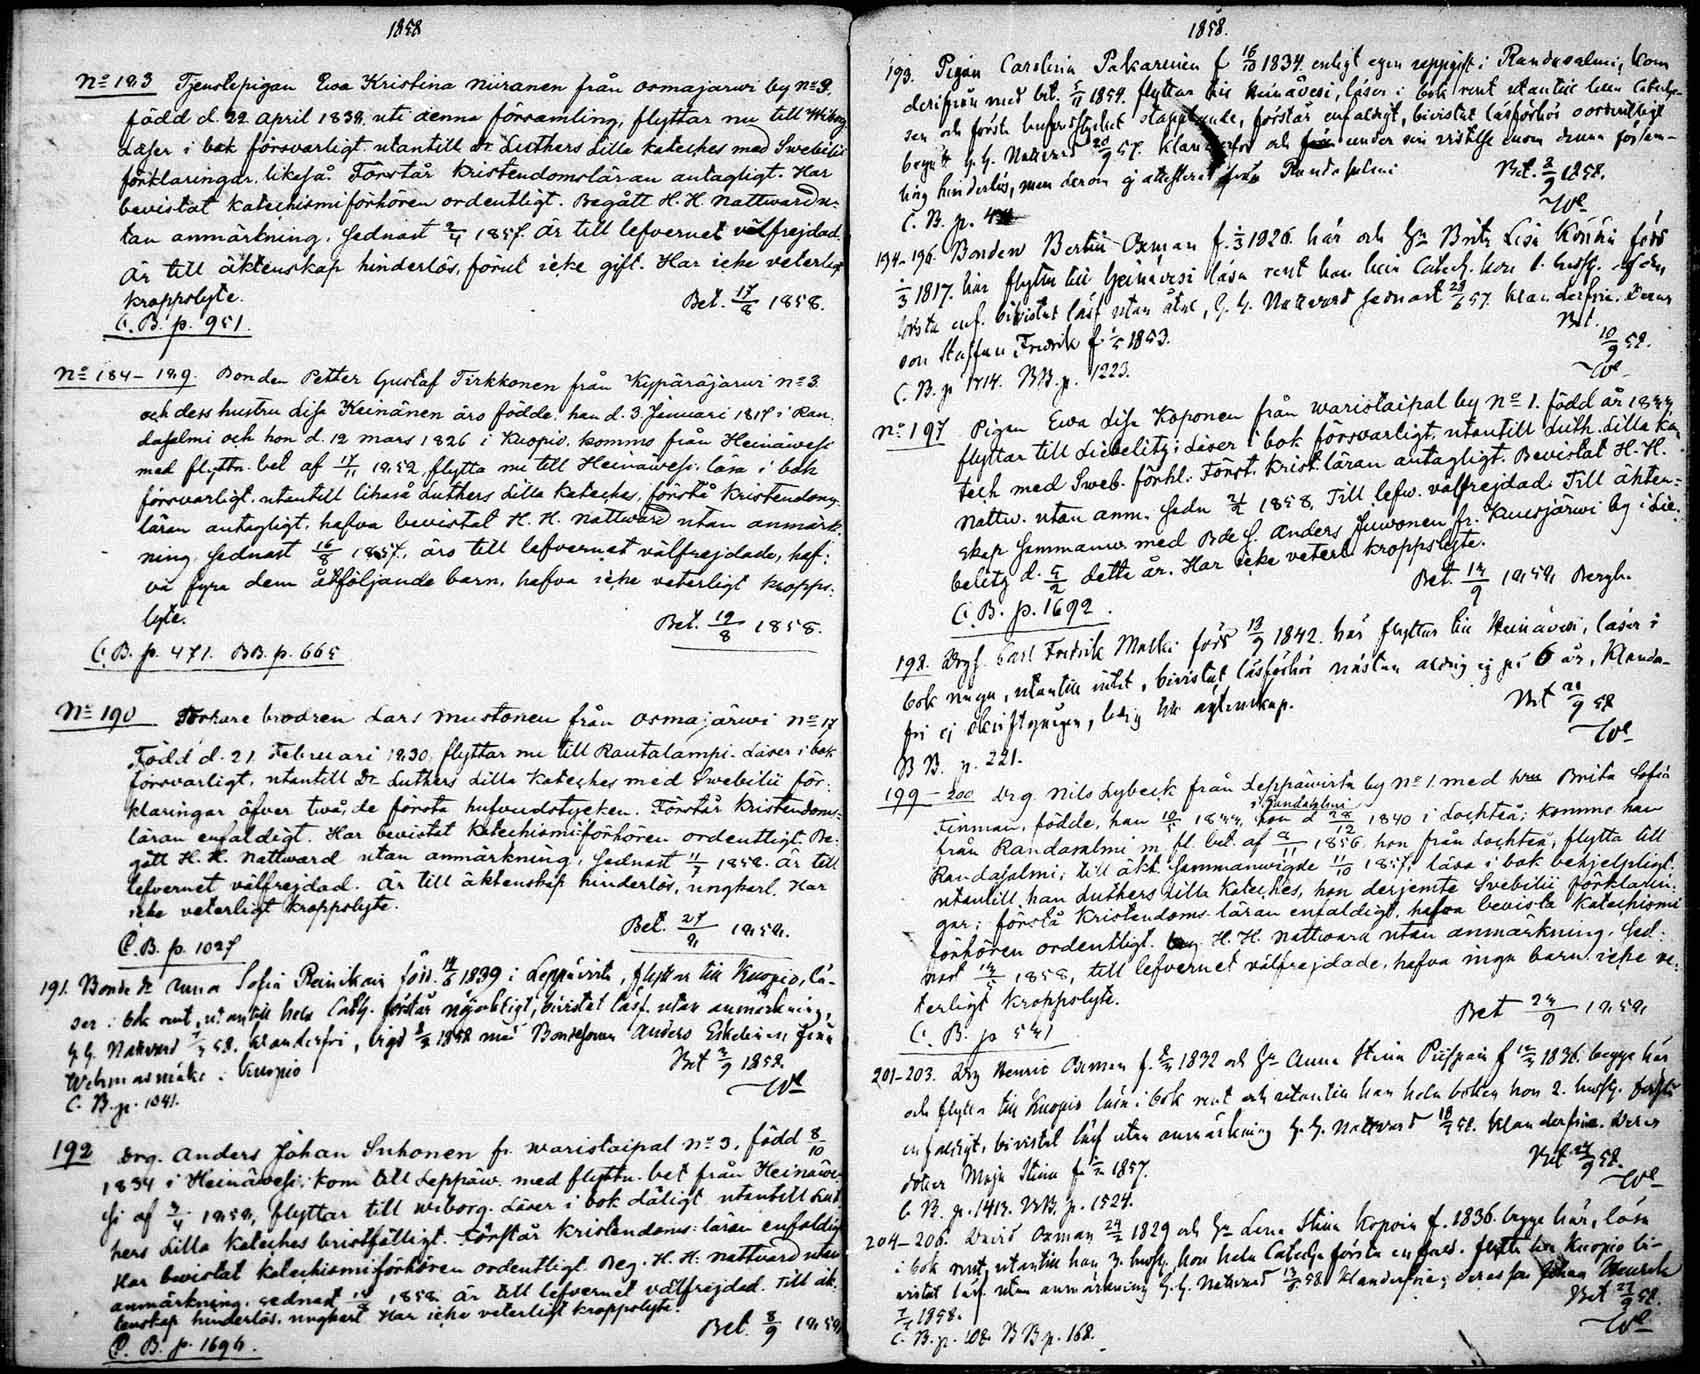 1858
No 183 Tjenstepigan Ewa Kristina Niiranen från Osmajärwi by No 9.
född d. 22 April 1838, uti denna församling, flyttar nu till Wiborg
Läser i bok försvarligt utantill Dr Luthers Lilla Kateches med Swebilii
förklaringar, likeså. Förstår Kristendomsläran antagligt. Har
bevistat Katechismiförhören ordentligt. Begått H. H. Nattward u-
tan anmärkning. Sednast 1857. Är till lefvernet välfrejdad.
Är till äktenskap hinderlös, förut icke gift. Har icke veterligt
kroppslyte. Bet. 17/8 1858.
C. B. p. 951.
No 184–189. Bonden Petter Gustaf Tirkkonen från Kypäräjärwi No 3.
och dess hustru Lisa Keinänen äro födde, han d. 3 Januari 1817 i Ran
dasalmi och hon d. 12 Mars 1826 i Kuopio, kommo från Heinäwesi
med flyttn. bet af 17/11 1852, flytta nu till Heinäwesi. läsa i bok
försvarligt. utantill likaså Luthers Lilla Kateches, förstå Kristendoms-
läran antagligt, hafva bevistat H. H. Nattward utan anmärk:
ning, Sednast 16/8 1857, äro till lefvernet välfrejdade, haf:
va fyra dem åtföljande barn, hafva icke veterligt kropps:
lyte. Bet. 19/8 1858.
C. B. p. 471. BB. p. 665
No 190 brodren Lars Mustonen från Osmajärwi No 17
Född d. 21 Februari 1830, flyttar nu till Rautalampi. Läser i bok
försvarligt, utantill Dr Luthers Lilla Kateches med Swebilii för:
klaringar öfver två, de första hufvudstycken. Förstår Kristendoms:
läran enfaldigt. Har bevistat Katechismiförhören ordentligt. Be:
gått H. H. Nattward utan anmärkning, Sednast 11/7 1858. Är till
lefvernet välfrejdad. Är till äktenskap hinderlös, ungkarl. Har
icke veterligt kroppslyte.
Bet. 27/8 1858.
C. B. p. 1027
191. Bonde Anna Sofia Reinikain född 1839 i Leppävirta, flyttar till Kuopio, lä-
ser i bok rent, utantill hela Catch. förstår nöjaktigt, bivistat läsf. utan anmärkning,
H. H. Nattvard 58. klanderfri, vigd 1858 med Bondesonen Anders Eskelinen från
Wehmasmäki i Kuopio Bet 9 1858.
C. B. p. 1041. We
192 Drg. Anders Johan Suhonen fr. Waristaipal No 3, född 8/10
1834 i Heinäwesi; kom till Leppäw. med flyttn. bet från Heinäwe
si af 1858, flyttar till Wiborg. Läser i bok dåligt utantill Lut
hers Lilla Kateches bristfälligt. Förstår Kristendoms: läran enfaldigt
Har bevistat Katechismiförhören ordentligt. Beg. H. H. Nattvard utan
anmärkning, sednast 1858. Är till lefvernet välfrejdad. Till äk:
tenskap hinderlös, ungkarl Har icke veterligt kroppslyte.
Bet. 8/9 1858
C. B. p. 1696.
1858.
193. Pigan Carolina Pakarinen f 1834 enligt egen uppgift i Randasalmi, kom
derifrån med bet. flyttar till Heinävesi, läser i bok rent utantill hela Cateche-
sen och första hufvudstycket stapplande, förstår enfaldigt, bivistat läsförhör oordentligt
begått H. H. Nattvard 57. klanderfri och under sin vistelse inom denna försam-
ling hinderlös, men derom ej attesterad från Randasalmi Bet. 2/9 1858.
C. B. p. We
194–196. Bonden Bertil Oxman f. 1826 här och Hu Brita Lisa född
1817. här flytta till Heinävesi läsa rent han hela Catech. hon 1. hufst.
första enf. bivistat läsf utan åtal, H. H. Nattvard sednast 57. klanderfrie. Deras
son Staffan Fredrik f. 1853. Bet. 10/9 58.
C. B. p 1714. BB. p. 1223. We
No 197 Pigan Ewa Lisa Koponen från Waristaipal by No 1. född år
flyttar till Libelitz; Läser i bok försvarligt, utantill Luth. Lilla Ka
tech med Sweb. förkl. Först. Krist. läran antagligt. Bevistat H. H.
Nattw. utan anm. Sedn 1858. Till lefw. välfrejdad. Till äkten=
skap Sammanw. med Bde S. Anders Juwonen fr. by i Lie:
belitz d. 5/2 detta år. Har icke veterl. kroppslyte.
Bet. 9 1858 Bergh.
C. B. p. 1692.
198. Drg. Carl Fredrik född 13/9 1842. här flyttar till Heinävesi, läser i
bok, utantill intet, bivistat läsförhör nästan aldrig ej på 6 år, klander-
fri ej skriftgången, ledig till äktenskap. Bet 9 58
B B. p. 221. We
199–200 Drg Nils Lybeck från Leppäwirta by No 1 med hru Brita Sofia
Finman, födde, han 10/5 i Randasalmi, hon d 28/12 1840 i Lochteå; kommo han
från Randasalmi m fl. bet. af 1856, hon från Lochteå, flytta till
Randasalmi; till äkt. Sammanwigde 11/10 1857; läsa i bok behjelpligt
utantill, han Luthers Lilla Kateches, hon derjemte Svebilii förklarin:
gar; förstå Kristendoms läran enfaldigt, hafva bevista Katechismi
förhören ordentligt. H. H. Nattward utan anmärkning. Sed:
nast 1858, till lefvernet välfrejdade, hafva inga barn, icke ve:
terligt kroppslyte. Bet 9 1858
C. B. p 541
201–203. Drg Henric Oxman f. 1832 och Hu Anna Stina f 1836. begge här
och flytta till Kuopio läsa i bok rent och utantill han hela boken hon 2. hufst. förstå
enfaldigt, bivistat läsf utan anmärkning H. H. Nattvard 58. klanderfrie. Deras
dotter Maja Stina f 1857. Bet 9 58.
C. B. p. 1413. BB. p. 1524. We
204–206. David Oxman 1829 och Hu Lena Stina Kopoin f. 1836. begge här, läsa
i bok rent, utantill han 3. hufst. hon hela Catech. förstå enfald. flytta till Kuopio bi-
vistat läsf. utan anmärkning H. H. Nattvard 58 klanderfrie; deras son Johan Henrik
1858. Bet 9 58.
C. B. p. 108. BB p. 168. We